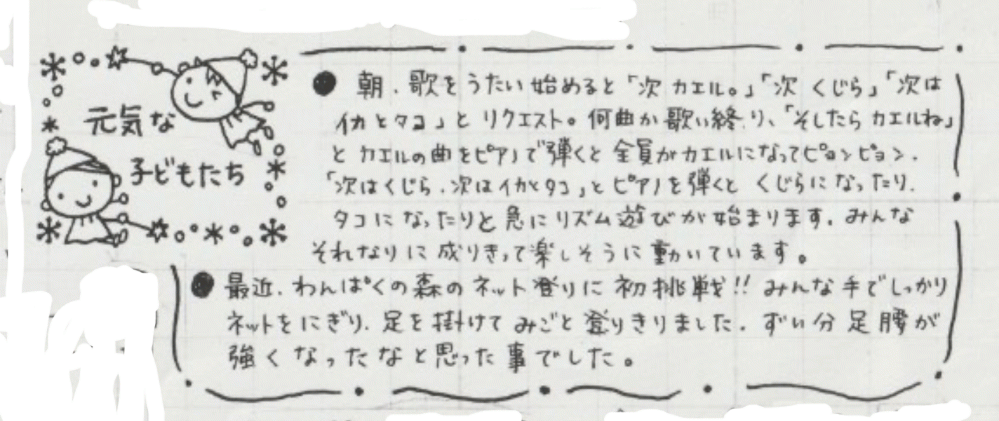 元気な
子どもたち
● 朝、歌をうたい始めると「次 カエル。」「次 くじら」「次は
イカとタコ」と リクエスト。何曲か歌い終り、「そしたら カエルね」
と カエルの曲をピアノで弾くと 全員がカエルになってピョンピョン.
「次はくじら、次はイカとタコ」と ピアノを弾くと くじらになったり.
タコになったりと急にリズム遊びが始まります. みんな
それなりに成りきって楽しそうに動いています。
● 最近、わんぱくの森のネット登りに初挑戦!! みんな手でしっかり
ネットをにぎり、足を掛けて みごと登りきりました. ずい分足腰が
強くなったなと思った事でした。